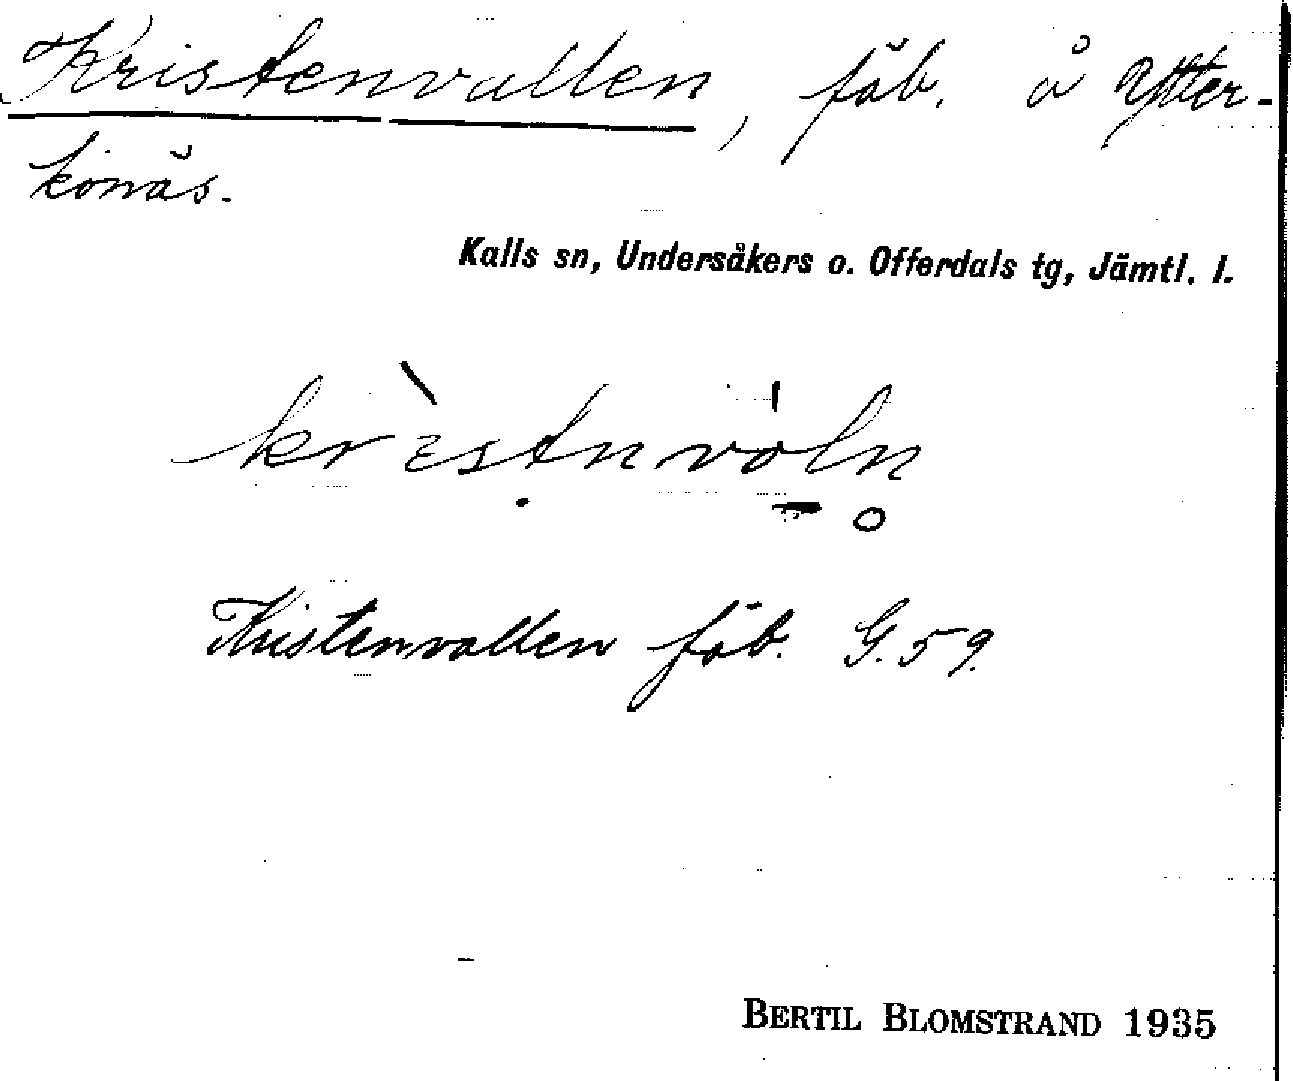 Kristenvallen, fäb. å Ytter-
konäs.
Kalls sn, Undersåkers o. Offerdals tg, Jämtl. l.
Kristenvallen fäb. G. 59.
BERTIL BLOMSTRAND 1935